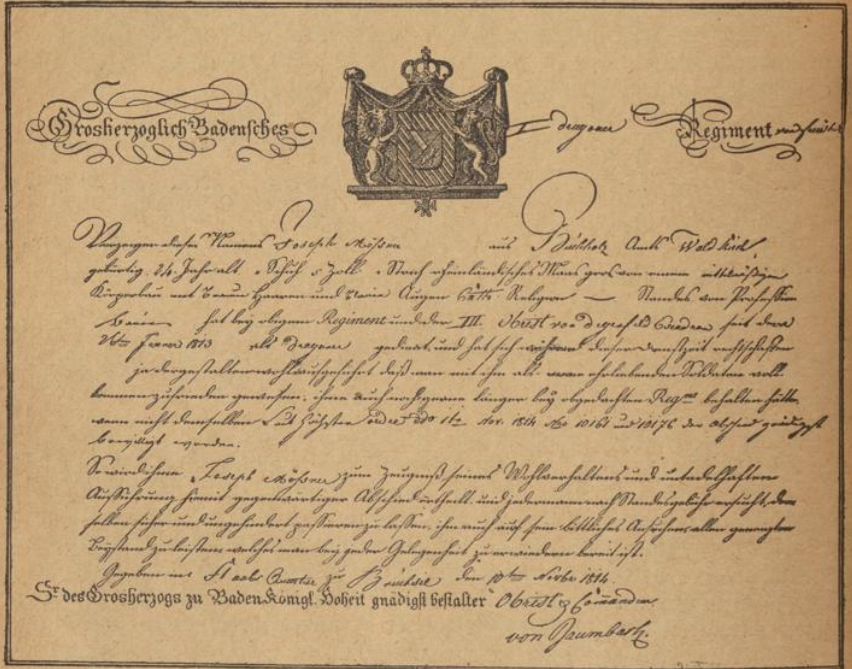 Grosherzoglich Badensches
I Dragoner Regiment
Vorzeiger dieses Namens Joseph Mößner aus Buchholz Amts Waldkirch
gebürtig, 24 Jahr alt, Schuh 5 Zoll Strich rheinländisches Maas gros von einem
Körperbau mit braun Haaren und Augen Kath. Religion — Standes von Profession
Bauer hat bey obigem Regiment und der III. Obrist von Escadron seit dem
1813 als Dragoner gedient, und hat sich während dieser Dienstzeit rechtschaffen
ja dergestalten wohl aufgeführt daß man mit ihm als einem ehrliebenden Soldaten voll
kommen zufrieden gewesen, ihn auch noch gerne länger bey obgedachten Regmt behalten hätte,
wenn nicht demselben Laut Höchster Ordre ddo 1t Nov. 1814 No 10161 und 10176 der Abschied gnädigst
bewilligt worden.
So wird ihm Joseph Mößner zum Zeugniß seines Wohlverhaltens und untadelhaften
Aufführung hiemit gegenwärtiger Abschied ertheilt, und jedermann nach Standesgebühr ersucht, den
selben sicher und ungehindert passieren zu lassen, ihm auch auf sein bittliches Ansuchen allen geneigten
Beystand zu leisten, welches man bey jeder Gelegenheit zu erwiedern bereit ist.
Gegeben im Staabs Quartier zu den 10ten Novbr 1814.
Sr. des Grosherzogs zu Baden Königl. Hoheit gnädigst bestalter Obrist & Commandeur
von Baumbach.